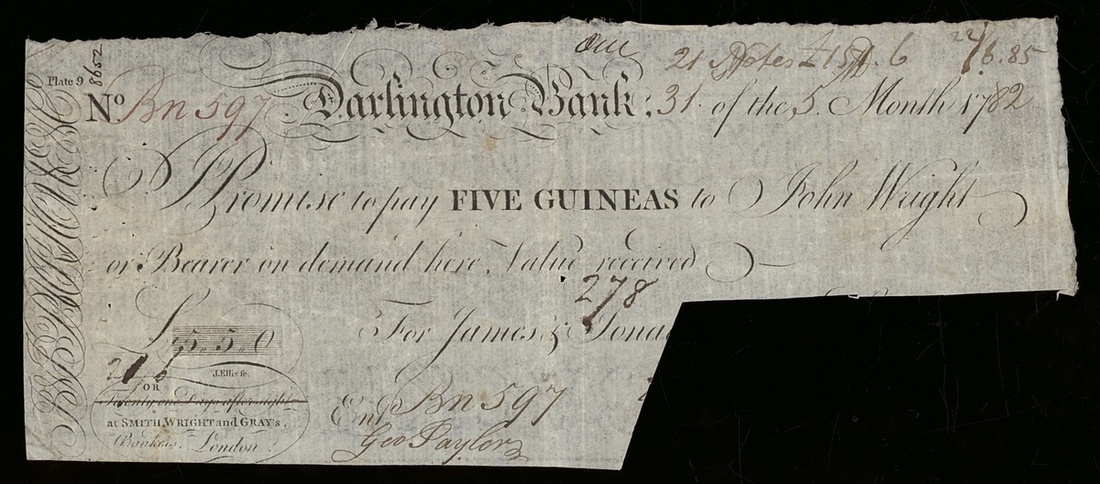 our 21 Notes £ 15 6
Plate 9 8652
No Bn 597 Darlington Bank, 31 of the 5 Month 1782
I Promise to pay FIVE GUINEAS to John Wright
or Bearer on demand here, Value received
278
£5.5.0 For James & Jona
J.Ellis sc.
OR
Twenty one Days after sight Entd Bn 597
at SMITH, WRIGHT and GRAY's, Geo Taylor
Bankers, London.